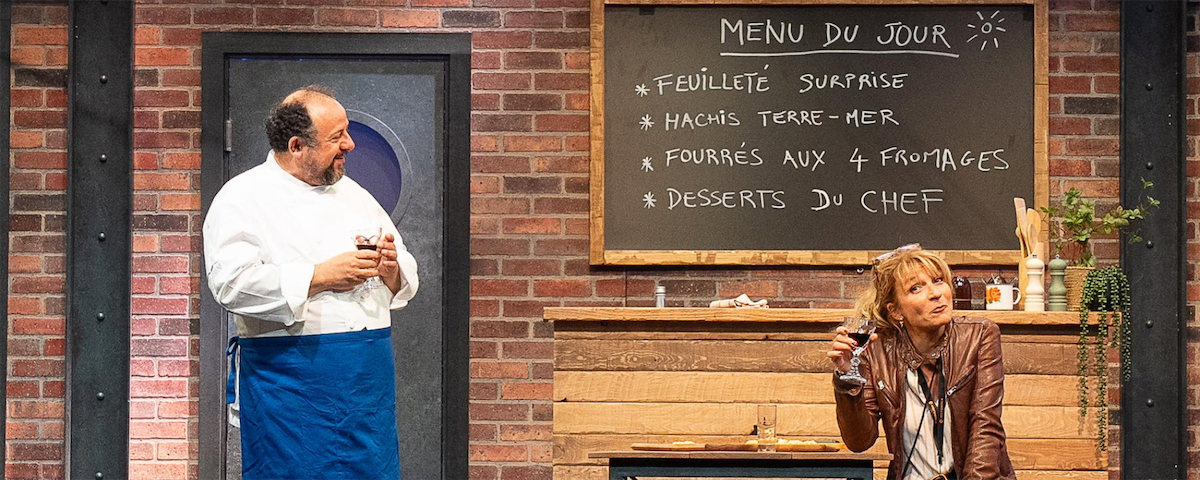 MENU DU JOUR
* FEUILLETÉ SURPRISE
* HACHIS TERRE-MER
* FOURRÉS AUX 4 FROMAGES
* DESSERTS DU CHEF